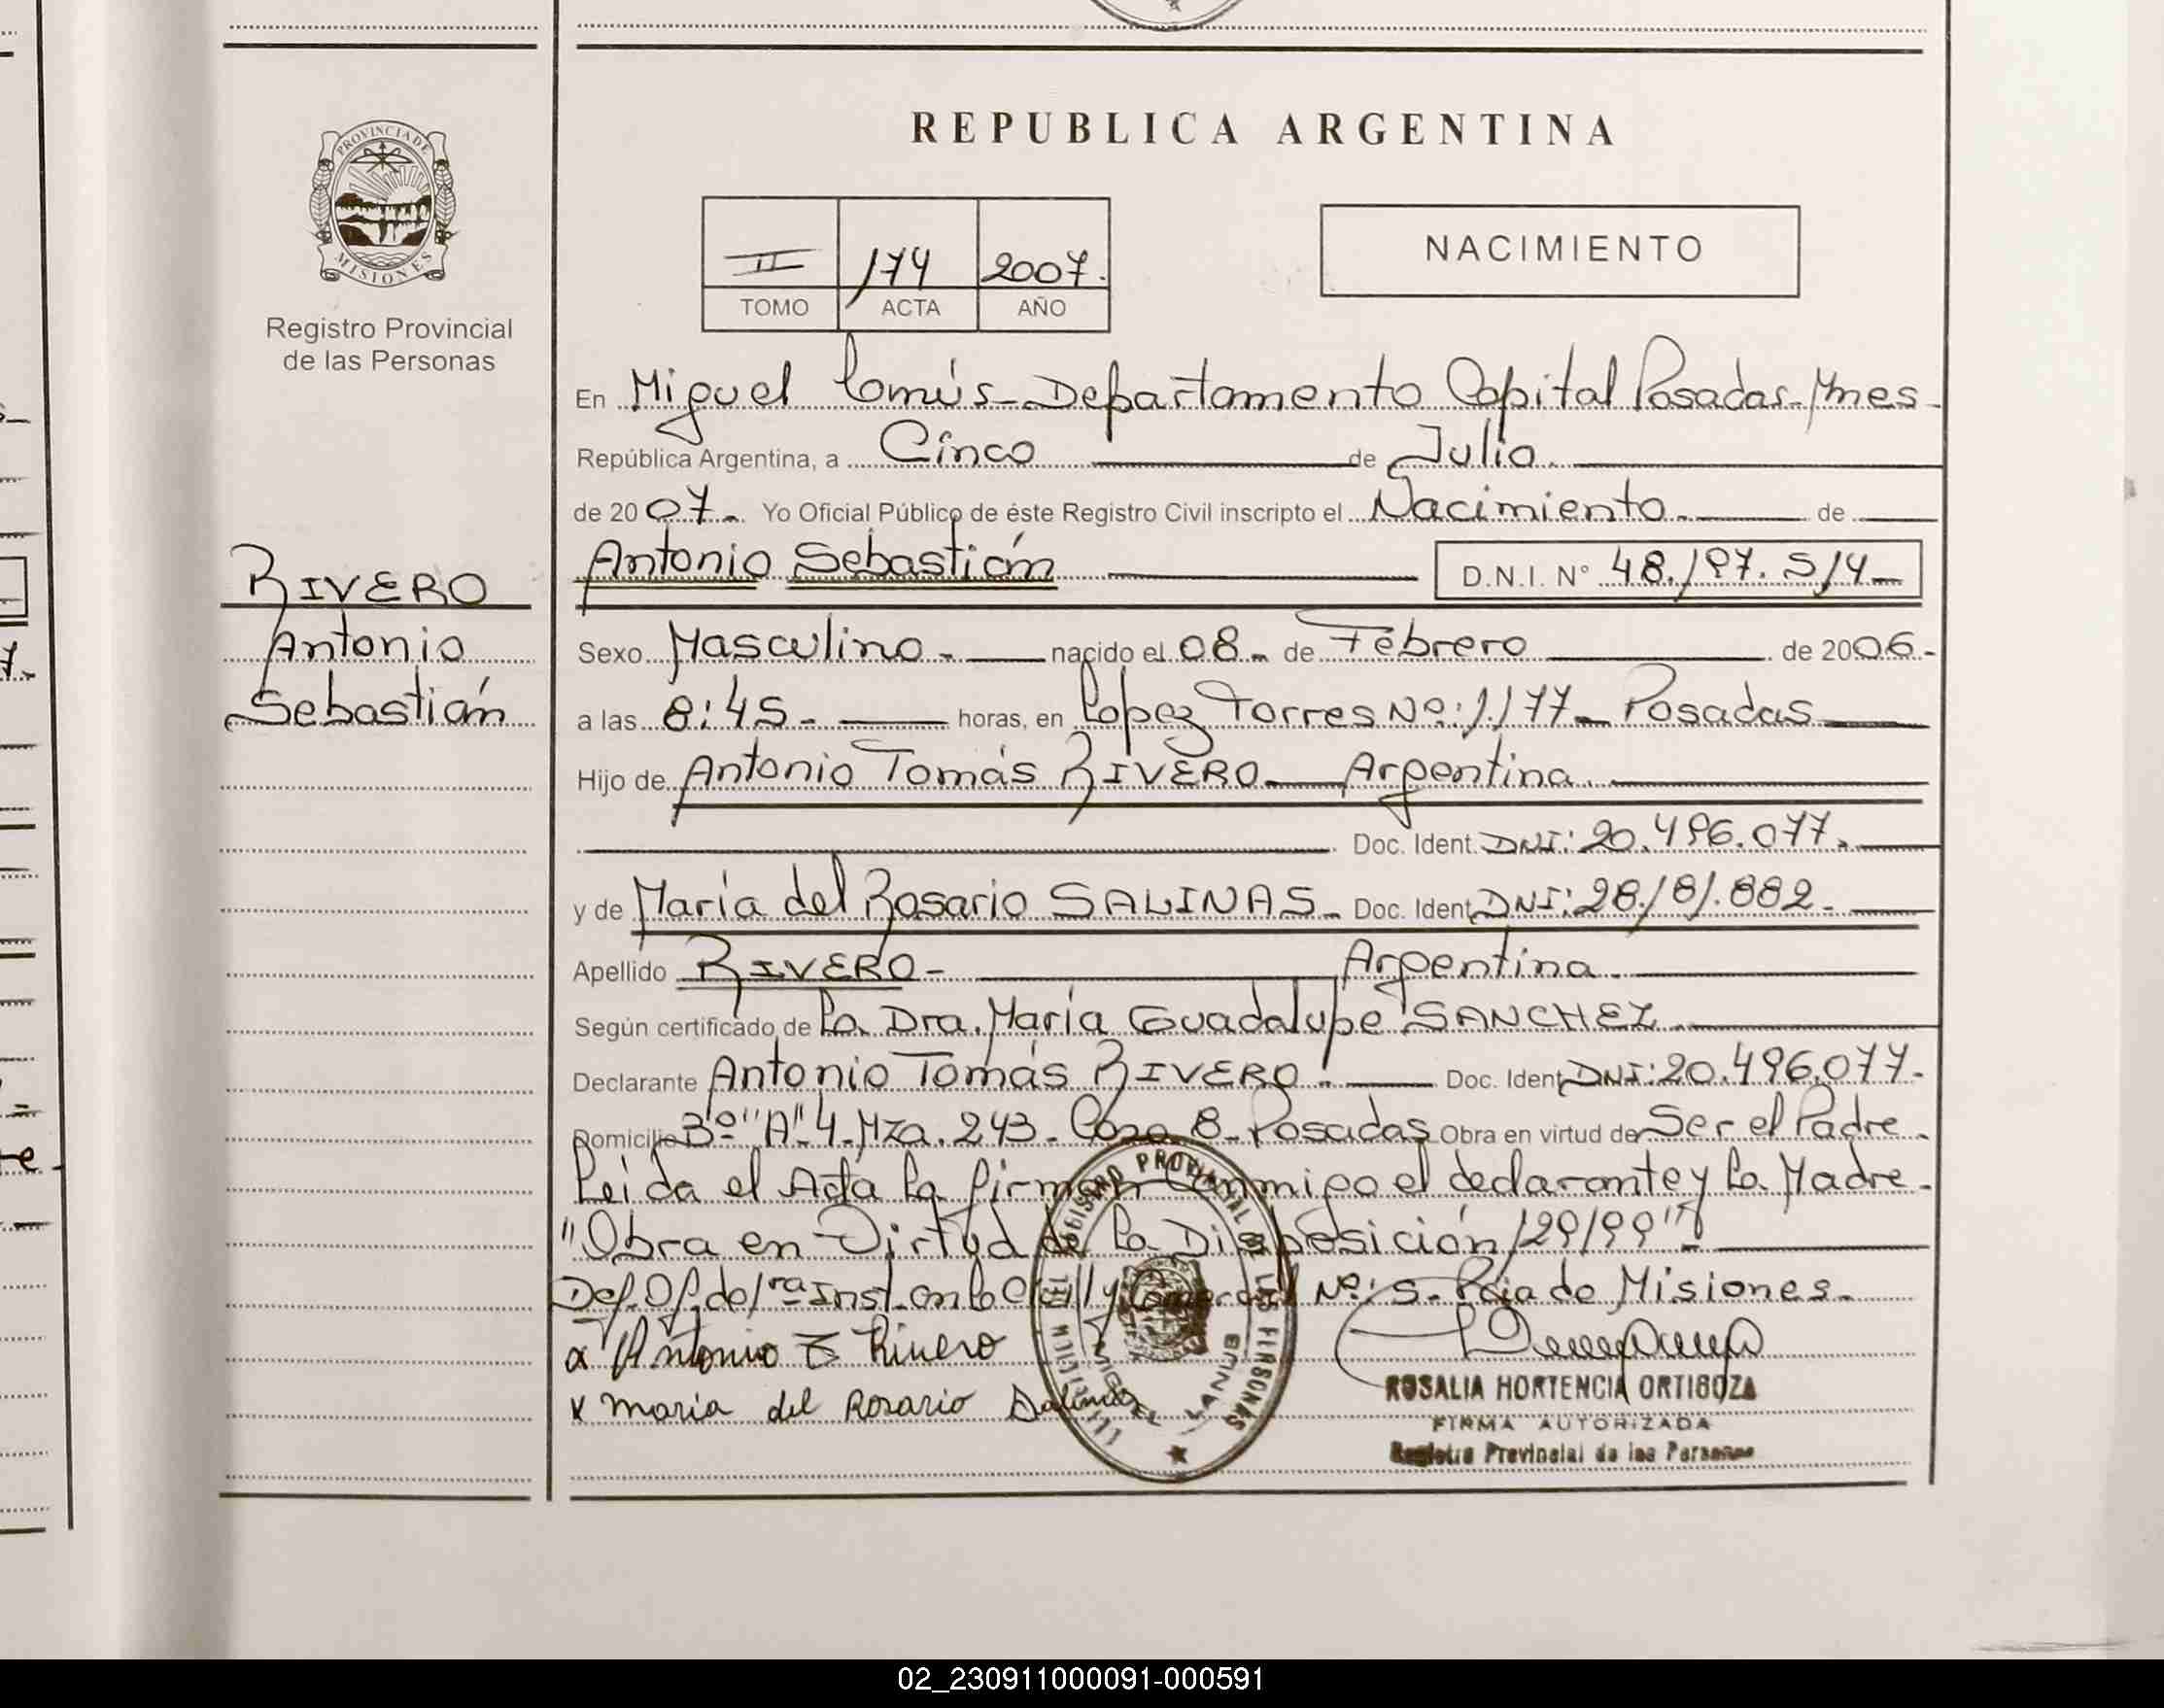 REPUBLICA ARGENTINA
PROVINCIA DE
MISIONES
Registro Provincial
de las Personas
II 174 2007.
TOMO ACTA AÑO
NACIMIENTO
En Miguel Lanús - Departamento Capital Posadas - Mnes -
República Argentina, a Cinco de Julio.
de 2007 - Yo Oficial Público de éste Registro Civil inscripto el Nacimiento - de
RIVERO
Antonio
Sebastián
Antonio Sebastián D.N.I. N° 48.197.514 -
Sexo Masculino - nacido el 08 - de Febrero de 2006 -
a las 8:45 - horas, en Lopez Torres Nº: 1.177 - Posadas
Hijo de Antonio Tomás RIVERO - Argentina.
Doc. Ident. DNI: 20.496.077.
y de María del Rosario SALINAS - Doc. Ident. DNI: 28.181.882 -
Apellido RIVERO - Argentina.
Según certificado de La Dra. María Guadalupe SANCHEZ
Declarante Antonio Tomás RIVERO. Doc. Ident. DNI: 20.496.077.
Domicilio Bº "A" 4 - Mza. 243 - Casa 8 - Posadas Obra en virtud de Ser el Padre.
Leida el Acta La firman Conmigo el declarante y La Madre.
"Obra en Virtud de La Disposición 129/99" -
Def. Of. de 1ra Inst. en lo Civil y Comercial Nº: 5 - Pcia de Misiones.
x Antonio T Rivero
x Maria del Rosario Salinas
REGISTRO PROVINCIAL DE LAS PERSONAS
MIGUEL LANUS
ROSALIA HORTENCIA ORTIGOZA
FIRMA AUTORIZADA
Registro Provincial de las Personas
02_230911000091-000591